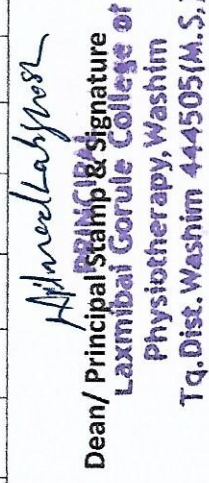 Dean/ Principal Stamp & Signature
PRINCIPAL
Laxmibai Gorule College of
Physiotherapy, Washim
Tq. Dist. Washim 444505(M.S.)